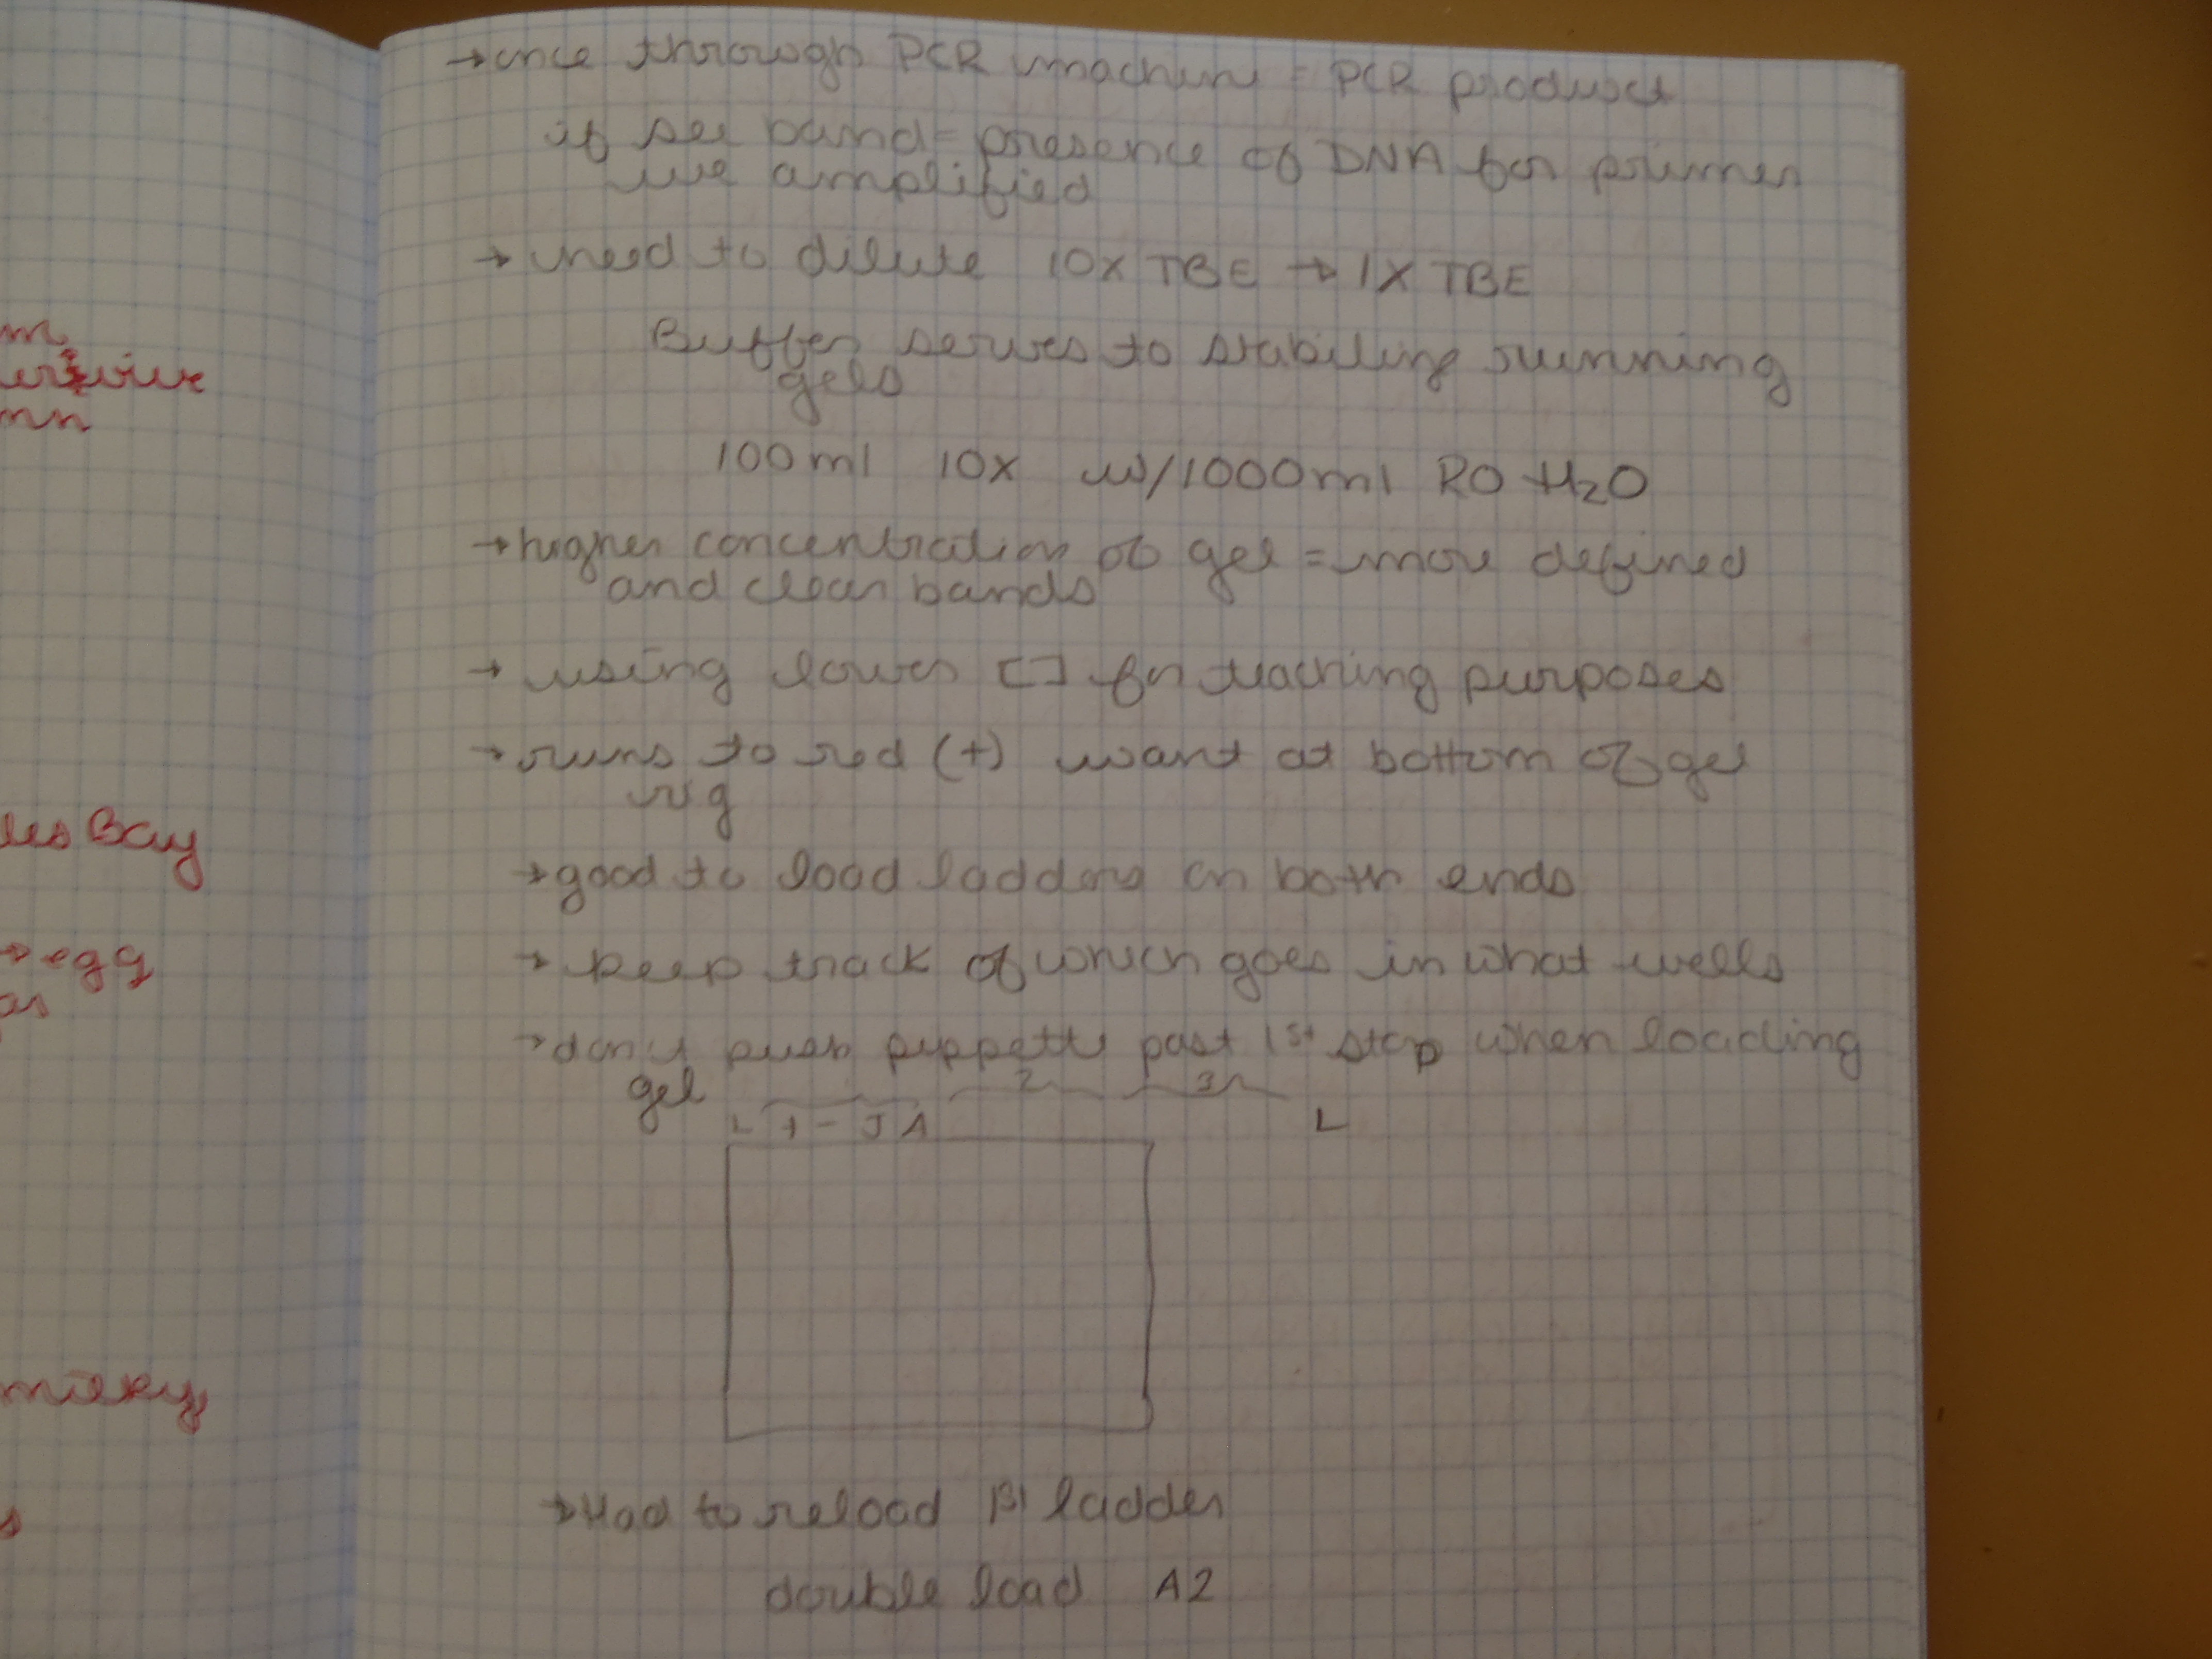 m
les Bay
→ egg
milky
→ once through PCR machine = PCR product
if see band = presence of DNA for primer
we amplified
→ need to dilute 10x TBE → 1X TBE
Buffer serves to stabilize running
gels
100ml 10x w/1000ml RO H₂O
→ higher concentration of gel = more defined
and clear bands
→ using lower [] for teaching purposes
→ runs to red (+) want at bottom of gel
rig
→ good to load ladders on both ends
→ keep track of which goes in what wells
→ don't push pippette past 1st stop when loading
gel
2 3
L + - J A L
→ Had to reload B1 ladder
double load A2